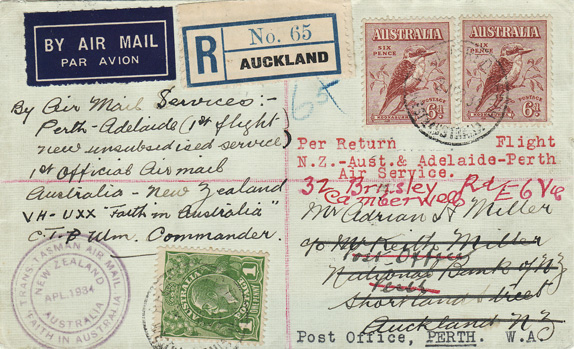 BY AIR MAIL
PAR AVION
R
No. 65
AUCKLAND
65
AUSTRALIA
SIX
PENCE
6D
POSTAGE
KOOKABURRA
AUSTRALIA
SIX
PENCE
6D
POSTAGE
KOOKABURRA
By Air Mail Services:-
Perth-Adelaide (1st flight
new unsubsidised service)
1st Official Air mail
Australia - New Zealand
VH-UXX "Faith in Australia"
C.T.P. Ulm. Commander.
Per Return Flight
N.Z.-Aust. & Adelaide-Perth
Air Service.
32 Brinsley Rd E6 Vic
Camberwell
Mr Adrian H Miller
c/o Mr Keith Miller
Post Office
National Bank of NZ
Perth
Shortland Street
Auckland NZ
Post Office, PERTH. W.A.
TRANS-TASMAN AIR MAIL
NEW ZEALAND
APL. 1934
AUSTRALIA
"FAITH IN AUSTRALIA"
AUSTRALIA
1
ONE PENNY